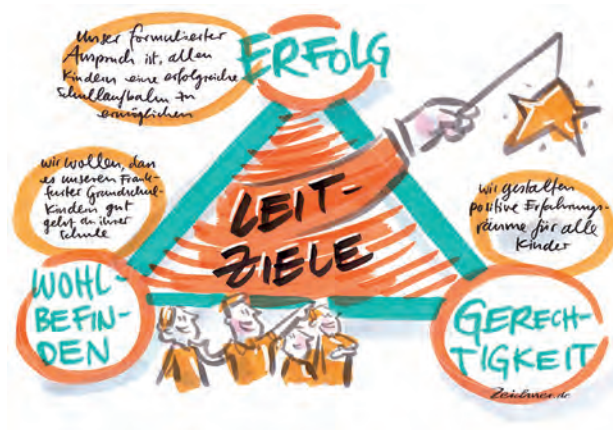 Unser formulierter
Anspruch ist, allen
Kindern eine erfolgreiche
Schullaufbahn zu
ermöglichen
ERFOLG
wir wollen, dass
es unseren Frank-
furter Grundschul-
kindern gut
geht an ihrer
Schule
LEIT-
ZIELE
wir gestalten
positive Erfahrungs-
räume für alle
Kinder
WOHL-
BEFIN-
DEN
GERECH-
TIGKEIT
Zeichner.de